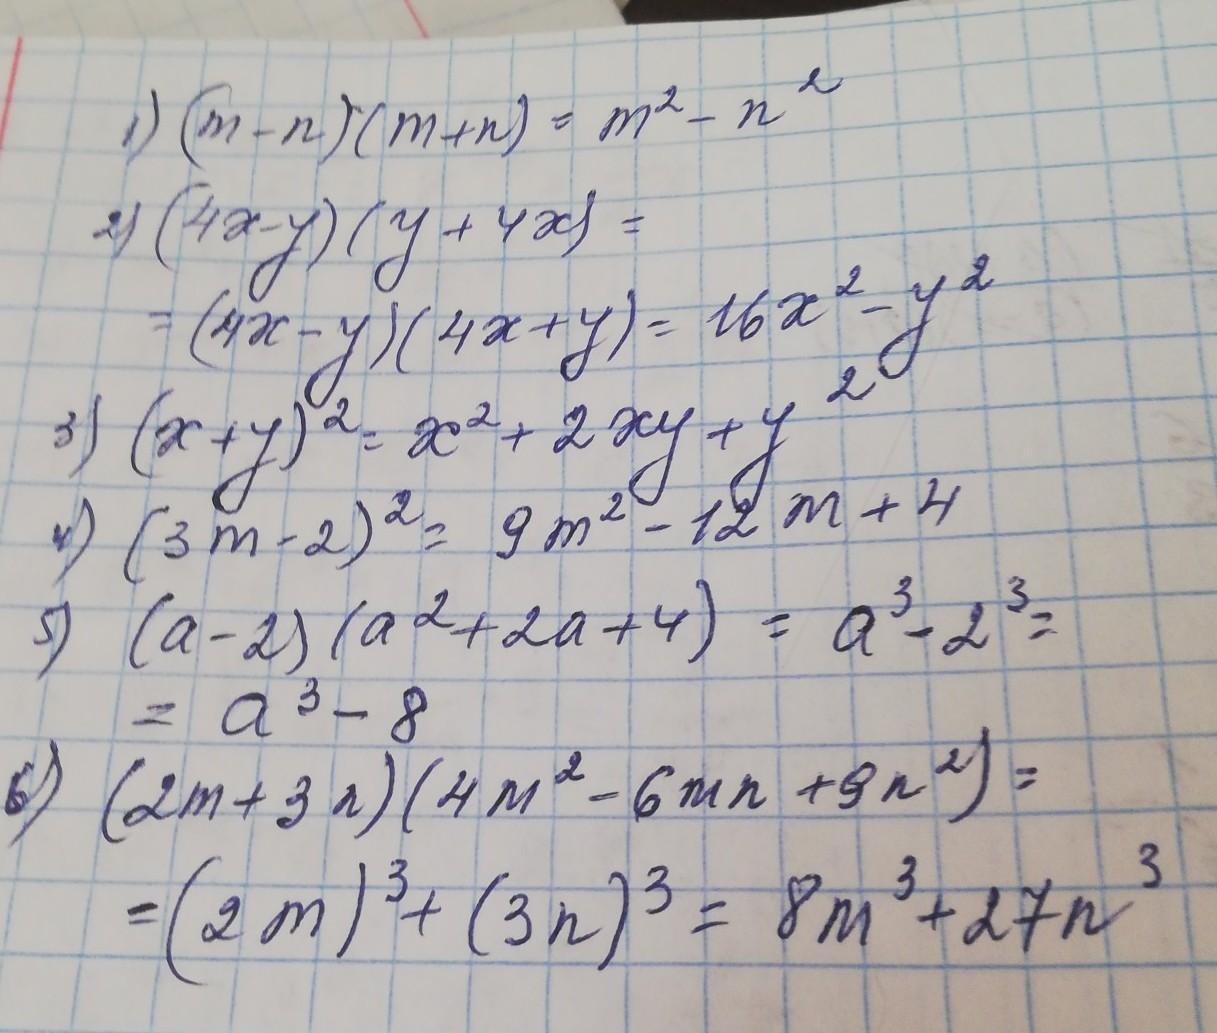 1) (m-n)(m+n) = m² - n²
2) (4x-y)(y+4x) =
= (4x-y)(4x+y) = 16x² - y²
3) (x+y)² = x² + 2xy + y²
4) (3m-2)² = 9m² - 12m + 4
5) (a-2)(a²+2a+4) = a³ - 2³ =
= a³ - 8
6) (2m+3n)(4m²-6mn+9n²) =
= (2m)³ + (3n)³ = 8m³ + 27n³